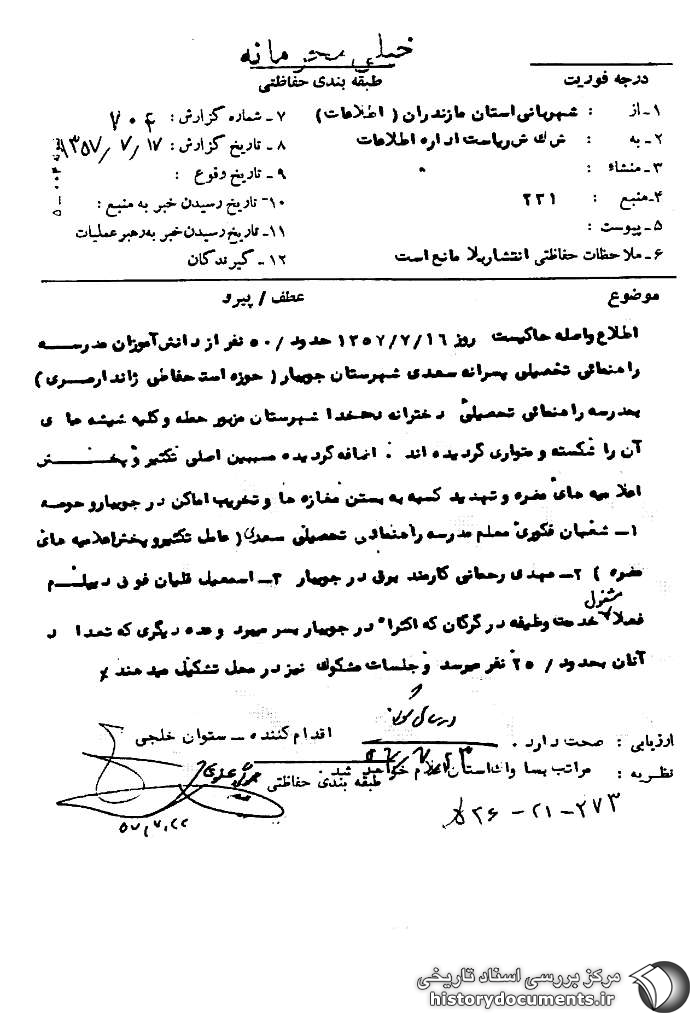 خیلی محرمانه
طبقه بندی حفاظتی
درجه فوریت
۱ـ از : شهربانی استان مازندران ( اطلاعات )
۲ـ به : ش ک ش ریاست اداره اطلاعات
۳ـ منشاء :
۴ـ منبع : ۲۳۱
۵ـ پیوست :
۶ـ ملاحظات حفاظتی انتشار بلا مانع است
۷ـ شماره گزارش : ۷۰۴
۸ـ تاریخ گزارش : ۱۳۵۷/۷/۱۷
۹ـ تاریخ وقوع :
۱۰ـ تاریخ رسیدن خبر به منبع :
۱۱ـ تاریخ رسیدن خبر به رهبر عملیات
۱۲ـ گیرندگان
موضوع
عطف / پیرو
اطلاع واصله حاکیست روز ۱۳۵۷/۷/۱۶ حدود /۵۰ نفر از دانش آموزان مدرسه
راهنمائی تحصیلی پسرانه سعدی شهرستان جویبار ( حوزه استحفاظی ژاندارمری )
بمدرسه راهنمائی تحصیلی دخترانه دهخدا شهرستان مزبور حمله و کلیه شیشه های
آن را شکسته و متواری گردیده اند . اضافه گردیده مسببین اصلی تکثیر و پخش
اعلامیه های مضره و تهدید کسبه به بستن مغازه ها و تخریب اماکن در جویبار و حومه
۱ـ شعبان فکوری معلم مدرسه راهنمائی تحصیلی سعدی ( عامل تکثیر و پخش اعلامیه های
مضره ) ۲ـ مهدی رحمانی کارمند برق در جویبار ۳ـ اسمعیل قلیان فونی دیپلم
فعلا مشغول خدمت وظیفه در گرگان که اکثرا در جویبار بسر میبرد و عده دیگری که تعداد
آنان بحدود /۲۵ نفر میرسد و جلسات مشکوک نیز در محل تشکیل میدهند
ارزیابی : صحت دارد .
اقدام کننده ـ ستوان خلجی
نظریه : مراتب بساواک استان اعلام خواهد شد
طبقه بندی حفاظتی
۵۷/۷/۲۲
۲۶ - ۲۱ - ۲۷۳
مرکز بررسی اسناد تاریخی
historydocuments.ir